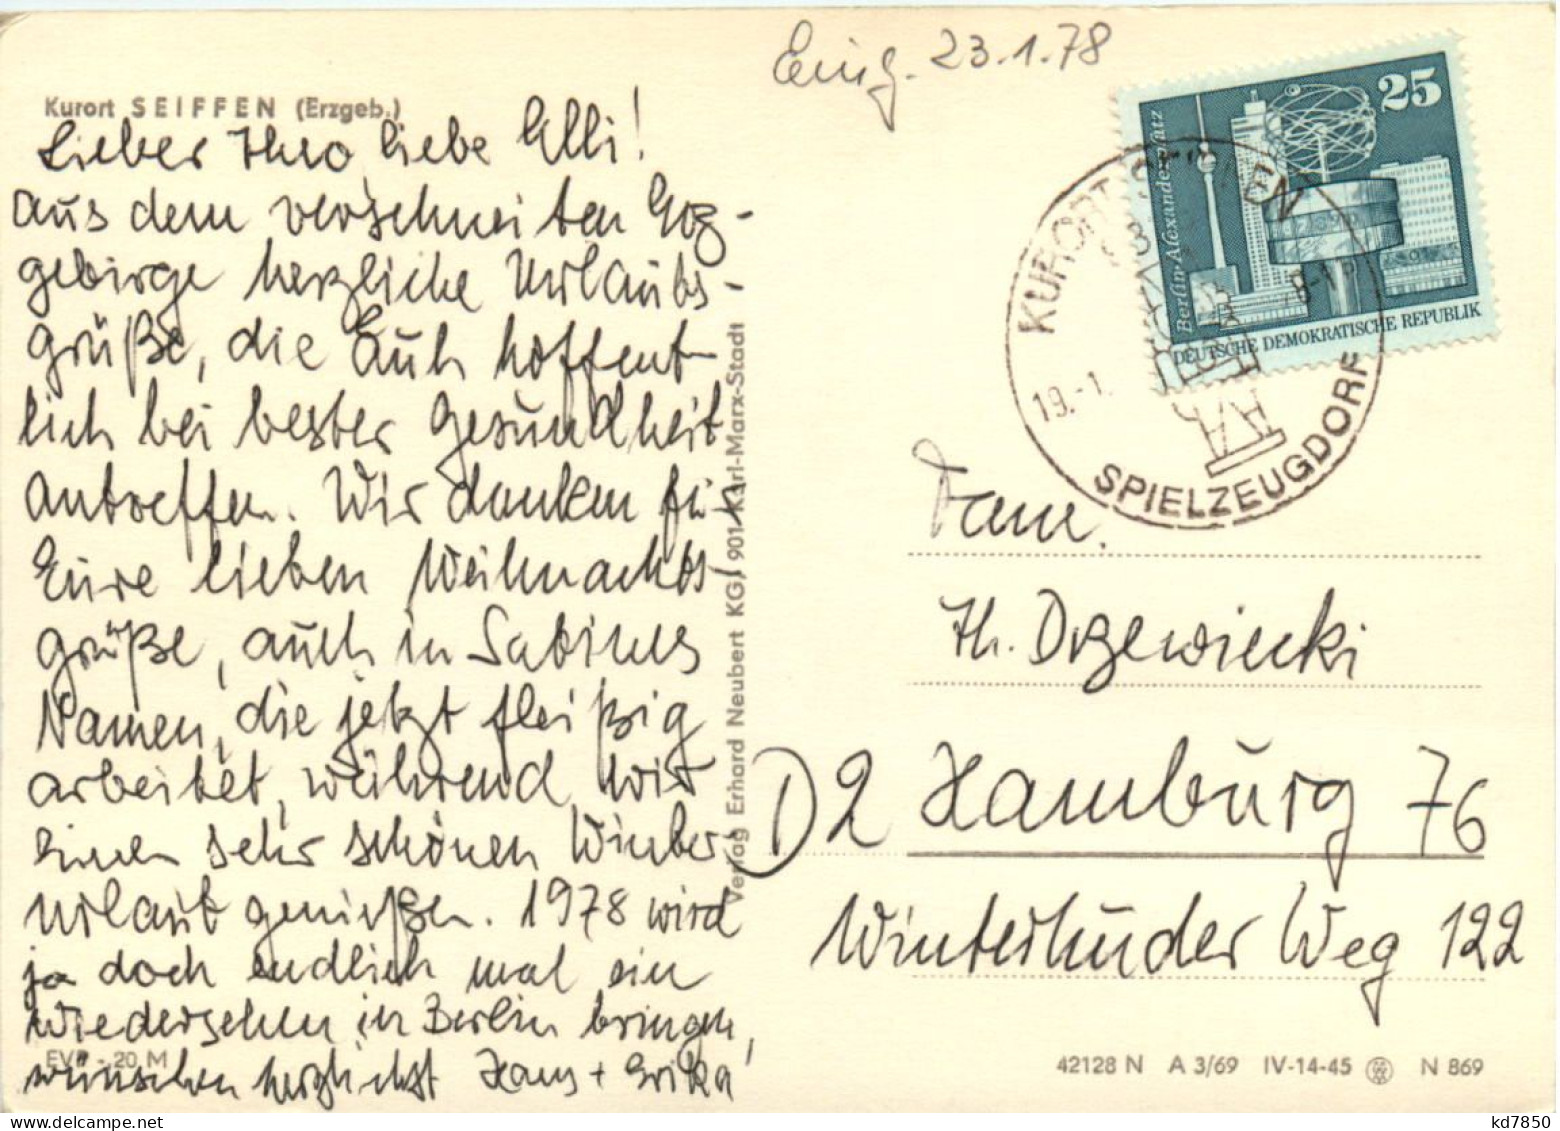 Kurort SEIFFEN (Erzgeb.)
Lieber Theo, liebe Elli!
aus dem verschneiten Erz-
gebirge herzliche Urlaubs-
grüße, die Euch hoffent-
lich bei bester Gesundheit
antreffen. Wir danken für
Eure lieben Weihnachts-
grüße, auch in Sabines
Namen, die jetzt fleißig
arbeitet, während wir
einen sehr schönen Winter-
urlaub genießen. 1978 wird
ja doch endlich mal ein
Wiedersehen in Berlin bringen,
wünschen herzlichst Hans + Erika!
EVP -20 M
Verlag Erhard Neubert KG, 901 Karl-Marx-Stadt
Eing. 23.1.78
25
Berlin-Alexanderplatz
DEUTSCHE DEMOKRATISCHE REPUBLIK
KURORT SEIFFEN
19.-1.
SPIELZEUGDORF
Fam.
Th. Drzewiecki
D2 Hamburg 76
Winterhuder Weg 122
42128 N A 3/69 IV-14-45 N 869
kd7850